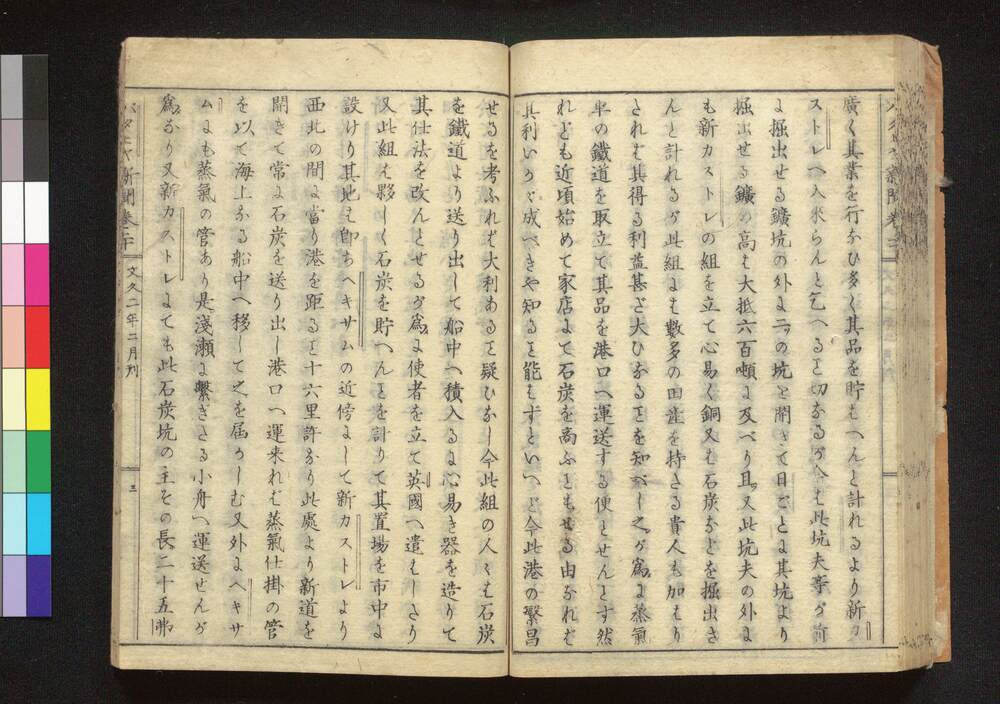 廣く其業を行なひ多く其品を貯もへんと計れるより新カ
ストレへ入来らんと乞へるヿ切なるが今も此坑夫亭が前
よ掘出せる鑛坑の外よ二ッの坑を開きて日ごとよ其坑より
掘出せる鑛の高も大抵六百噸よ及べり且又此坑夫の外よ
も新カストレの組を立て心易く銅又も石炭なとを掘出さ
んと計れるが此組よも數多の田産を持さる貴人も加もり
されも其得る利益甚だ大ひなるヿを知べし之が爲よ蒸氣
車の鐵道を取立て其品を港口へ運送する便とせんとす然
れども近頃始めて家店よて石炭を商ふともせる由なれむ
其利いかゞ成べきや知るヿ能もずといへど今此港の繁昌
せるを考ふれむ大利あるヿ疑ひなし今此組の人々も石炭
を鐵道より送り出して船中へ積入るよ心易き器を造りて
其仕法を改んとせるが爲よ使者を立て英國へ遣もしさり
又此組も夥しく石炭を貯へんヿを計りて其置場を市中よ
設けり其地も即ちヘキサムの近傍よして新カストレより
西北の間よ當り港を距るヿ十六里許なり此處より新道を
開きて常よ石炭を送り出し港口へ運来れむ蒸氣仕掛の管
を以て海上なる船中へ移して之を届かしむ又外よヘキサ
ムよも蒸氣の管あり是淺瀬よ繋ぎさる小舟へ運送せんが
爲なり又新カストレよても此石炭坑の主その長二十五弗
バタヒヤ新聞卷二十 文久二年二月刋 三